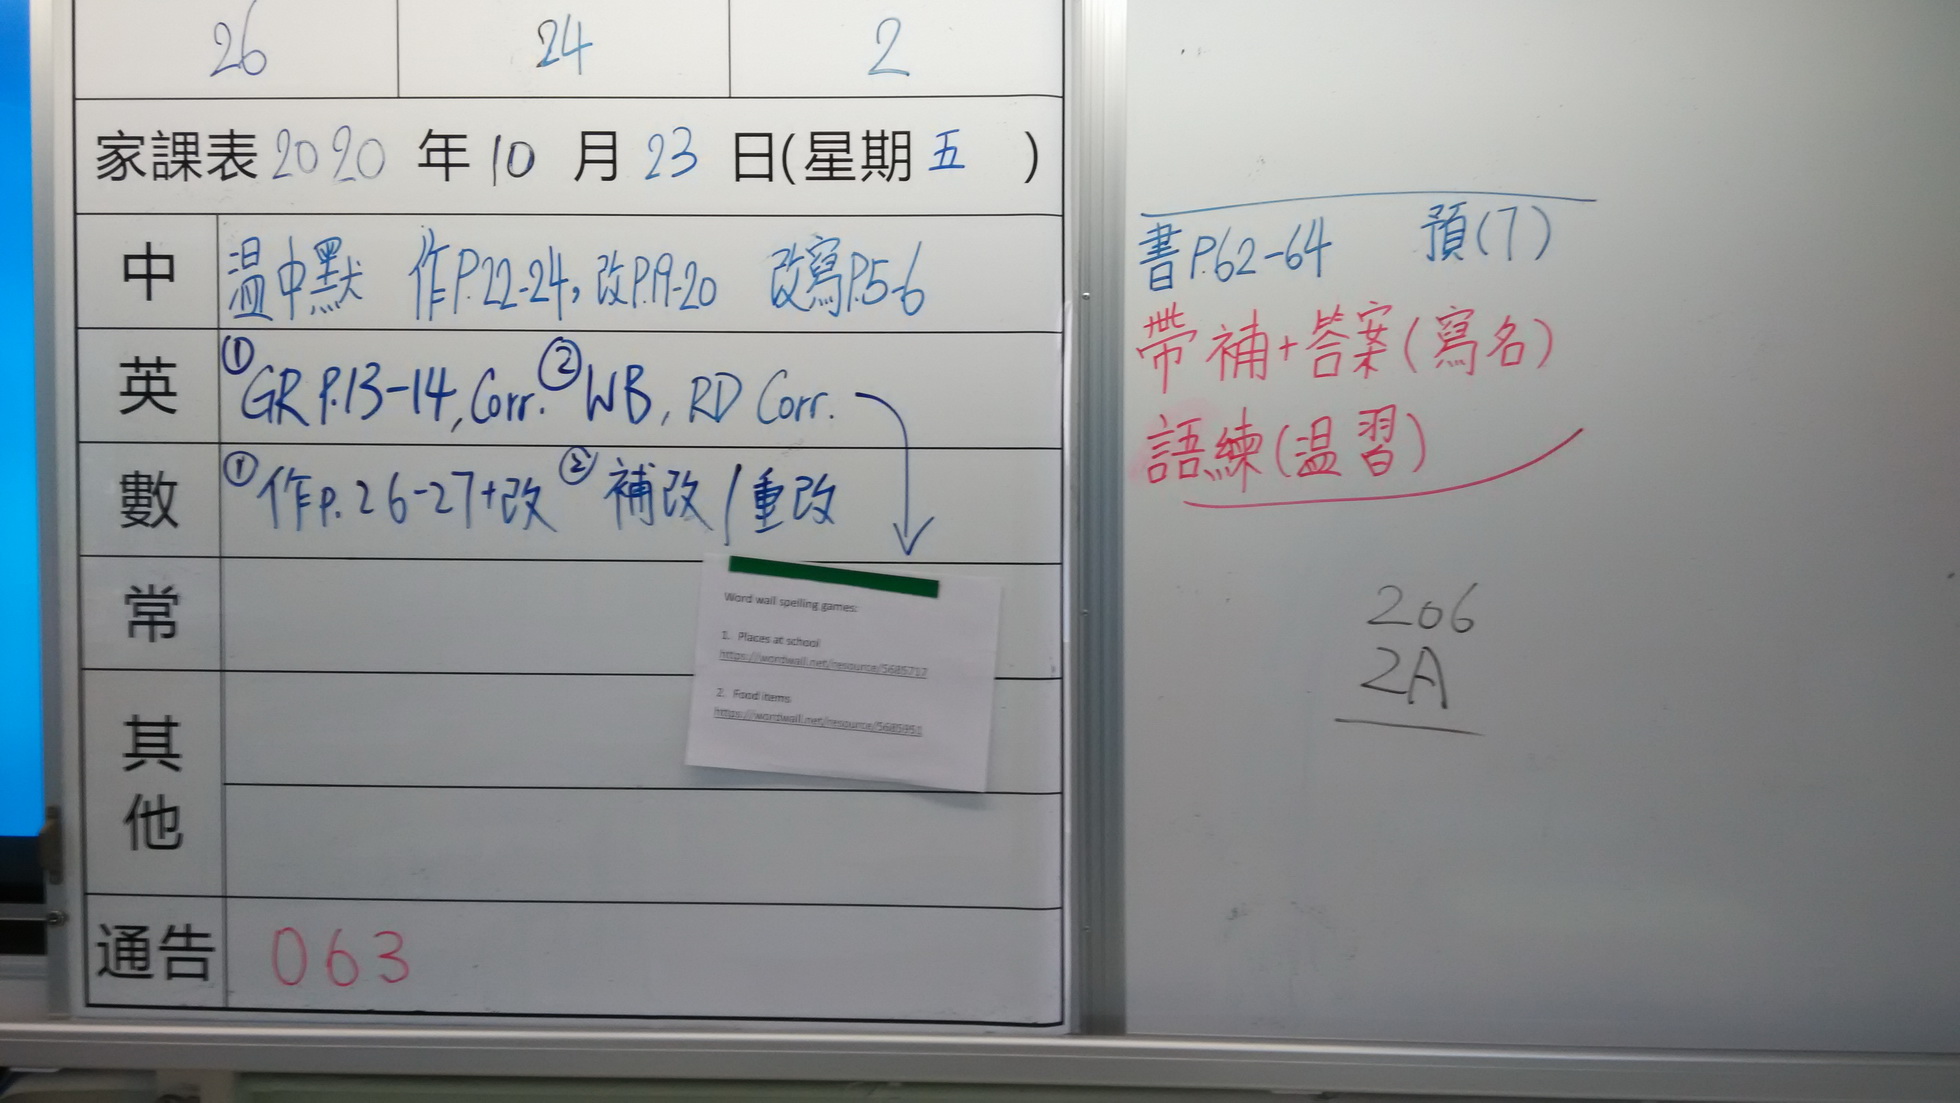 26 24 2
家課表 2020 年 10 月 23 日(星期 五 )
中 温中默 作P.22-24, 改P.19-20 改寫P.5-6
英 ①GR P.13-14, Corr. ②WB, RD Corr.
數 ①作P.26-27+改 ②補改/重改
常
Word wall spelling games:
1. Places at school
https://wordwall.net/resource/5685717
2. Food items
https://wordwall.net/resource/5685951
其他
通告 063
書P.62-64 預(7)
帶補+答案(寫名)
語練(温習)
206
2A